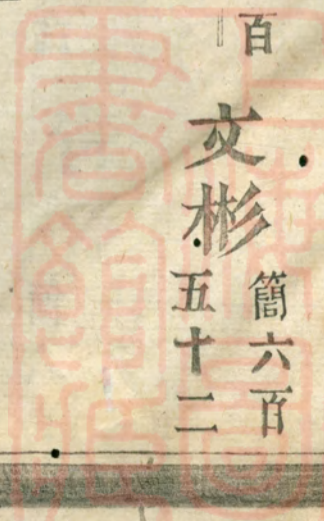 百
文彬
簡六百
五十二
書館